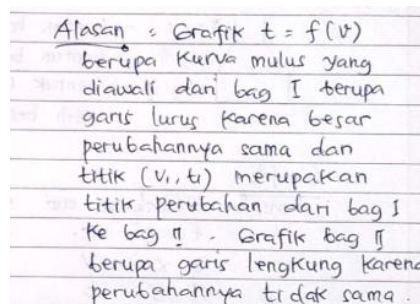 Alasan : Grafik t = f(v)
berupa kurva mulus yang
diawali dari bag I berupa
garis lurus karena besar
perubahannya sama dan
titik (v1, t1) merupakan
titik perubahan dari bag I
ke bag II. Grafik bag II
berupa garis lengkung karena
perubahannya tidak sama.